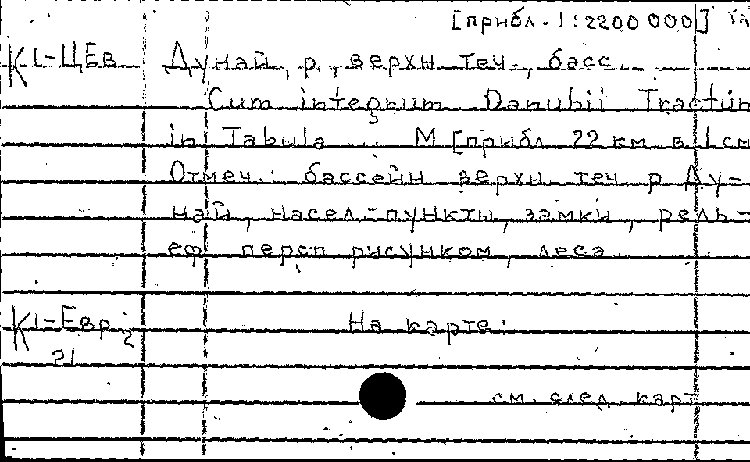 [прибл. 1:2200 000]
К1-ЦЕв Дунай, р., верхн. теч., басс.
Cum integrum Danubii Tractum
in Tabula... М [прибл. 22 км в 1 см
Отмеч.: бассейн верхн. теч. р. Ду-
най, насел. пункты, замки, рель-
еф персп. рисунком, леса
К1-Евр. На карте:
21
см. след. карт